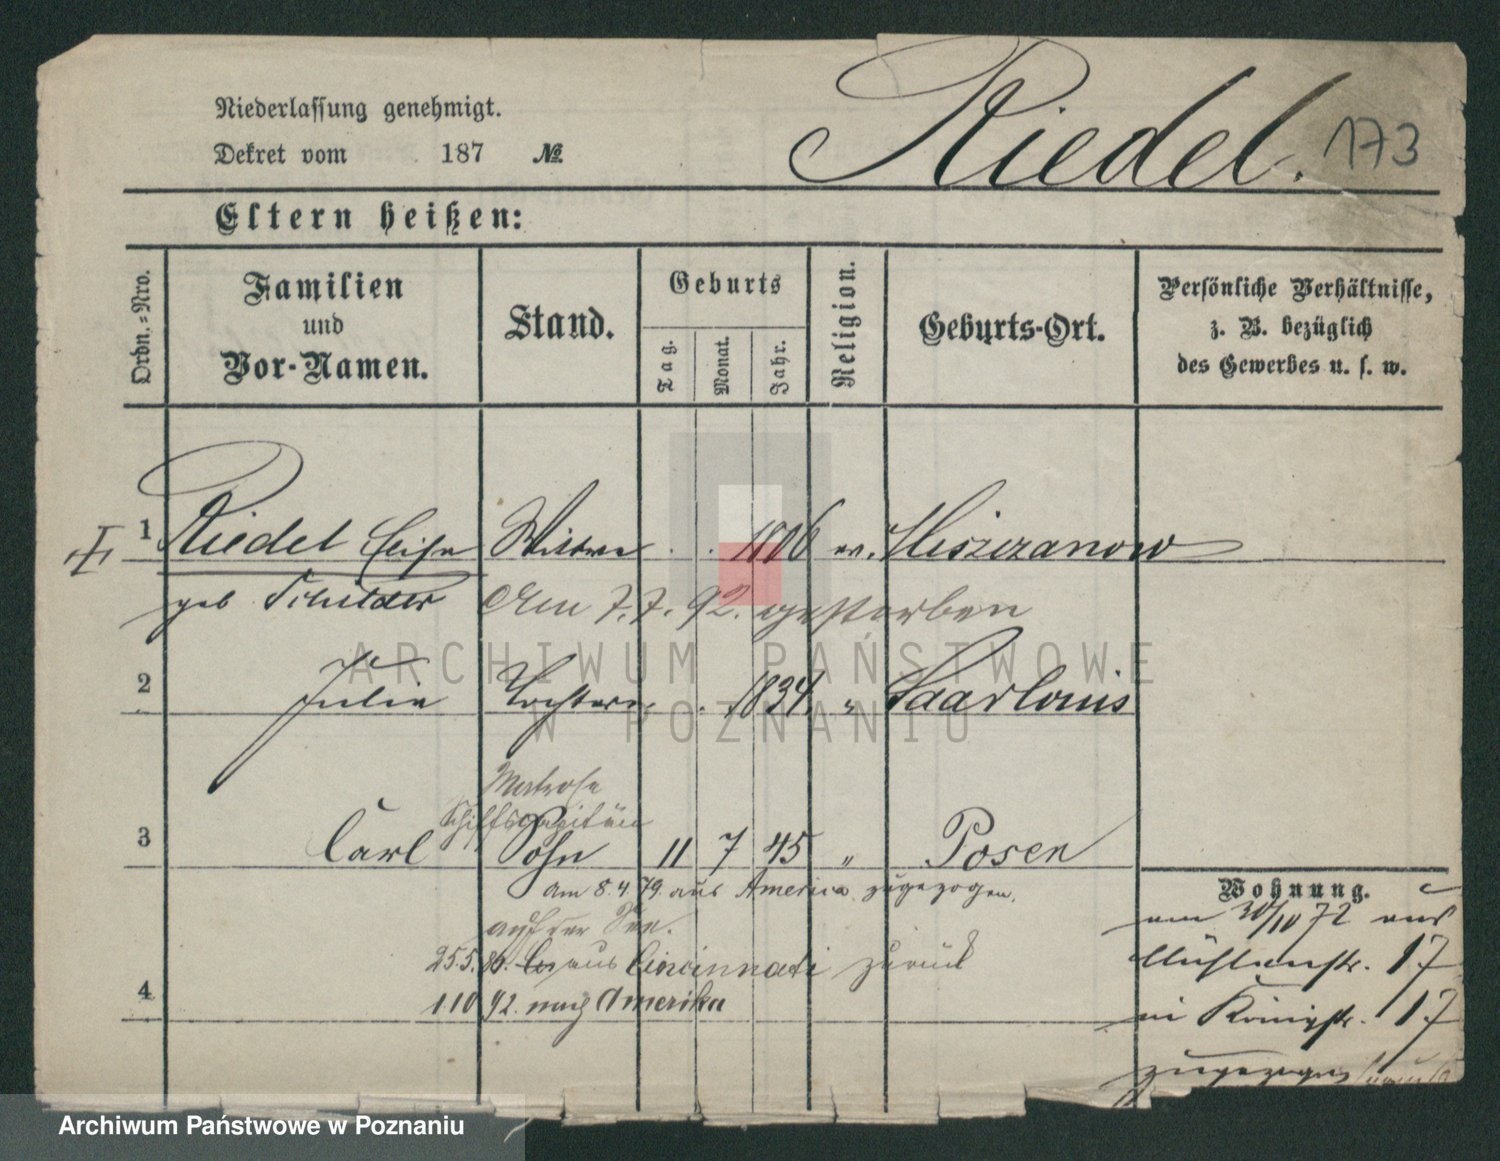 Niederlassung genehmigt.
Dekret vom 187 №
Riedel. 173
Eltern heißen:
Ordn.-Nro.
Familien
und
Vor-Namen.
Stand.
Geburts
Tag.
Monat.
Jahr.
Religion.
Geburts-Ort.
Persönliche Verhältnisse,
z. B. bezüglich
des Gewerbes u. s. w.
1 Riedel Wittwe 1806 ev.
geb Schilder Am 7.7.92. gestorben
2 Julie Tochter 1834. " Saarlouis
Matrose
Schiffscapitän
3 Carl Sohn 11 7 45 " Posen
am 8.4.79. aus America zugezogen.
auf der See.
25.5.86. aus Cincinnati zurück
4 1 10 92. nach Amerika
Wohnung.
am 30/10 72 aus
Mühlenstr. 17
in Königstr. 17
zugezogen
ARCHIWUM PAŃSTWOWE
W POZNANIU
Archiwum Państwowe w Poznaniu